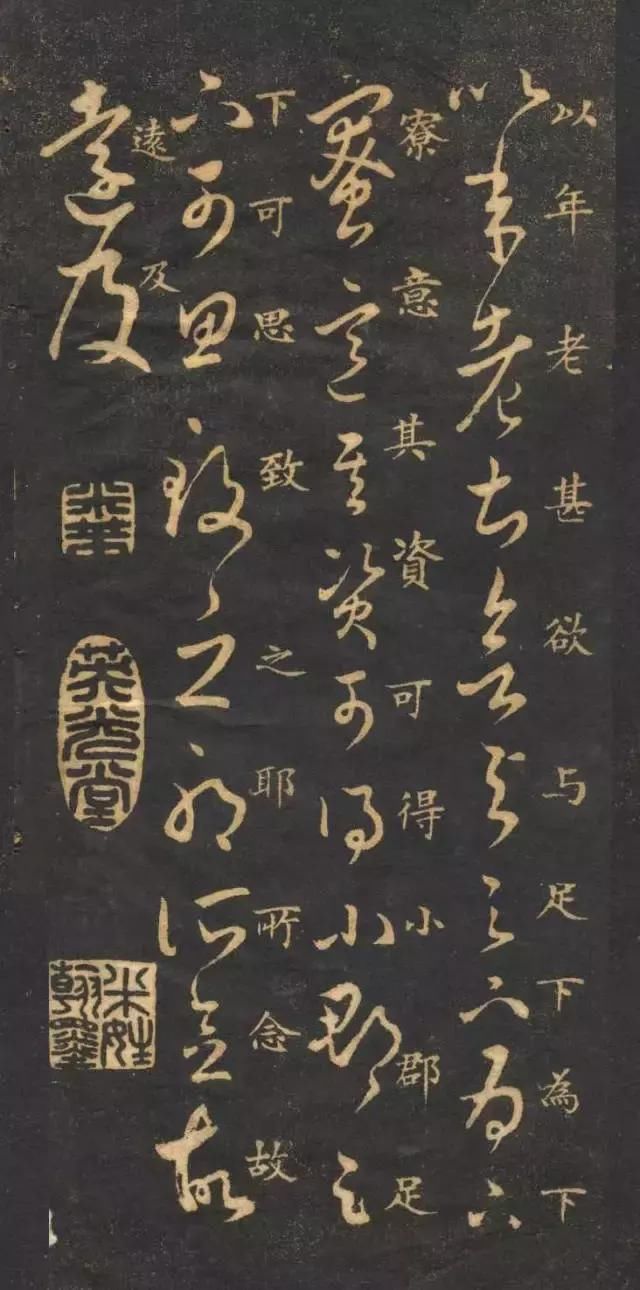 以年老甚欲与足下為下
以年老甚欲与足下為下
寮意其資可得小郡足
寮意其資可得小郡足
下可思致之耶所念故
下可思致之耶所念故
遠及
遠及
英光堂
米姓翰墨